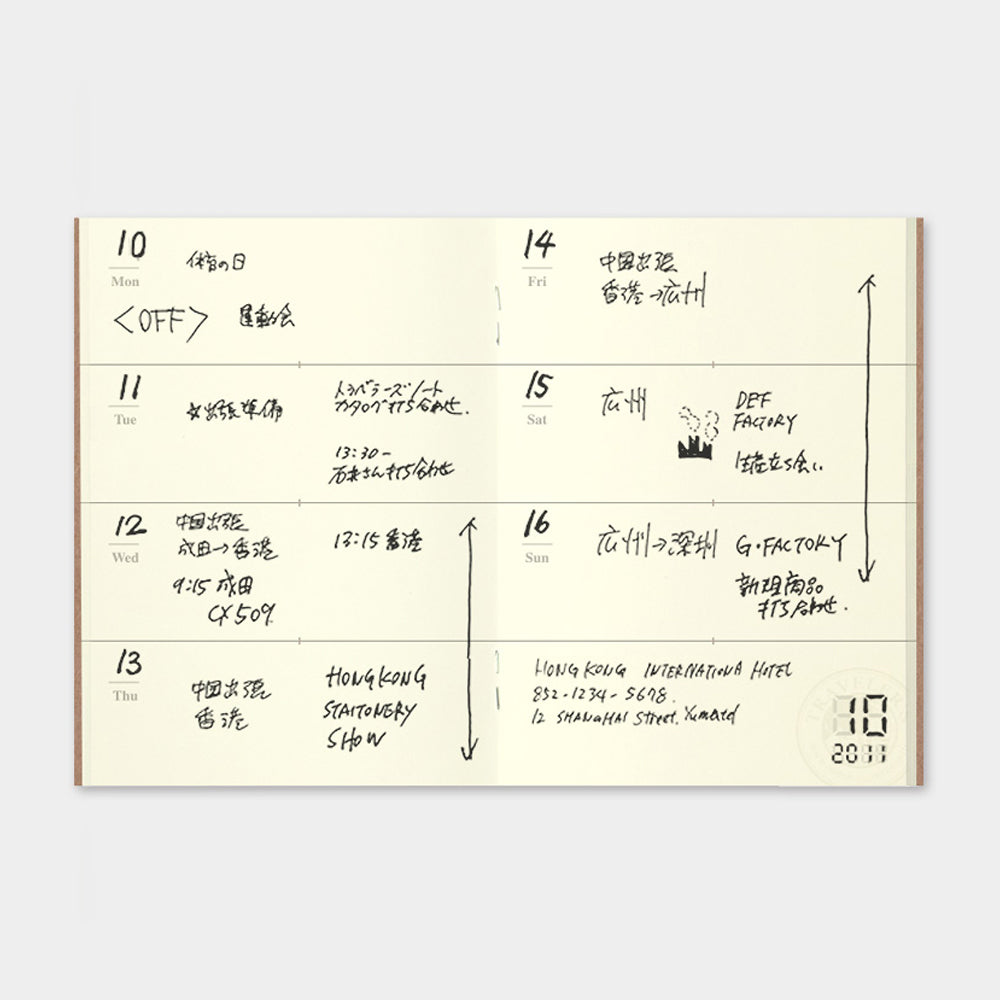 10
Mon
体育の日
<OFF> 運動会
11
Tue
出張準備
トラベラーズノート
カタログ打ち合わせ.
13:30-
石井さん打ち合わせ
12
Wed
中国出張
成田→香港
9:15 成田
CX 509
13:15 香港
13
Thu
中国出張
香港
HONGKONG
STAITONERY
SHOW
14
Fri
中国出張
香港→広州
15
Sat
広州
DEF
FACTORY
生産立ち会い
16
Sun
広州→深圳
G・FACTORY
新規商品
打ち合わせ.
HONG KONG INTERNATIONA HOTEL
852-1234-5678.
12 SHANGHAI Street.
10
2011